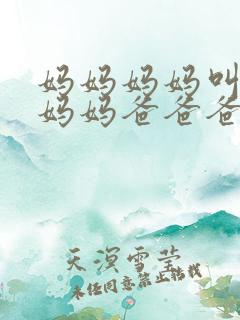 妈妈妈妈叫
妈妈爸爸爸
天溟雪莹
未经同意禁止转载